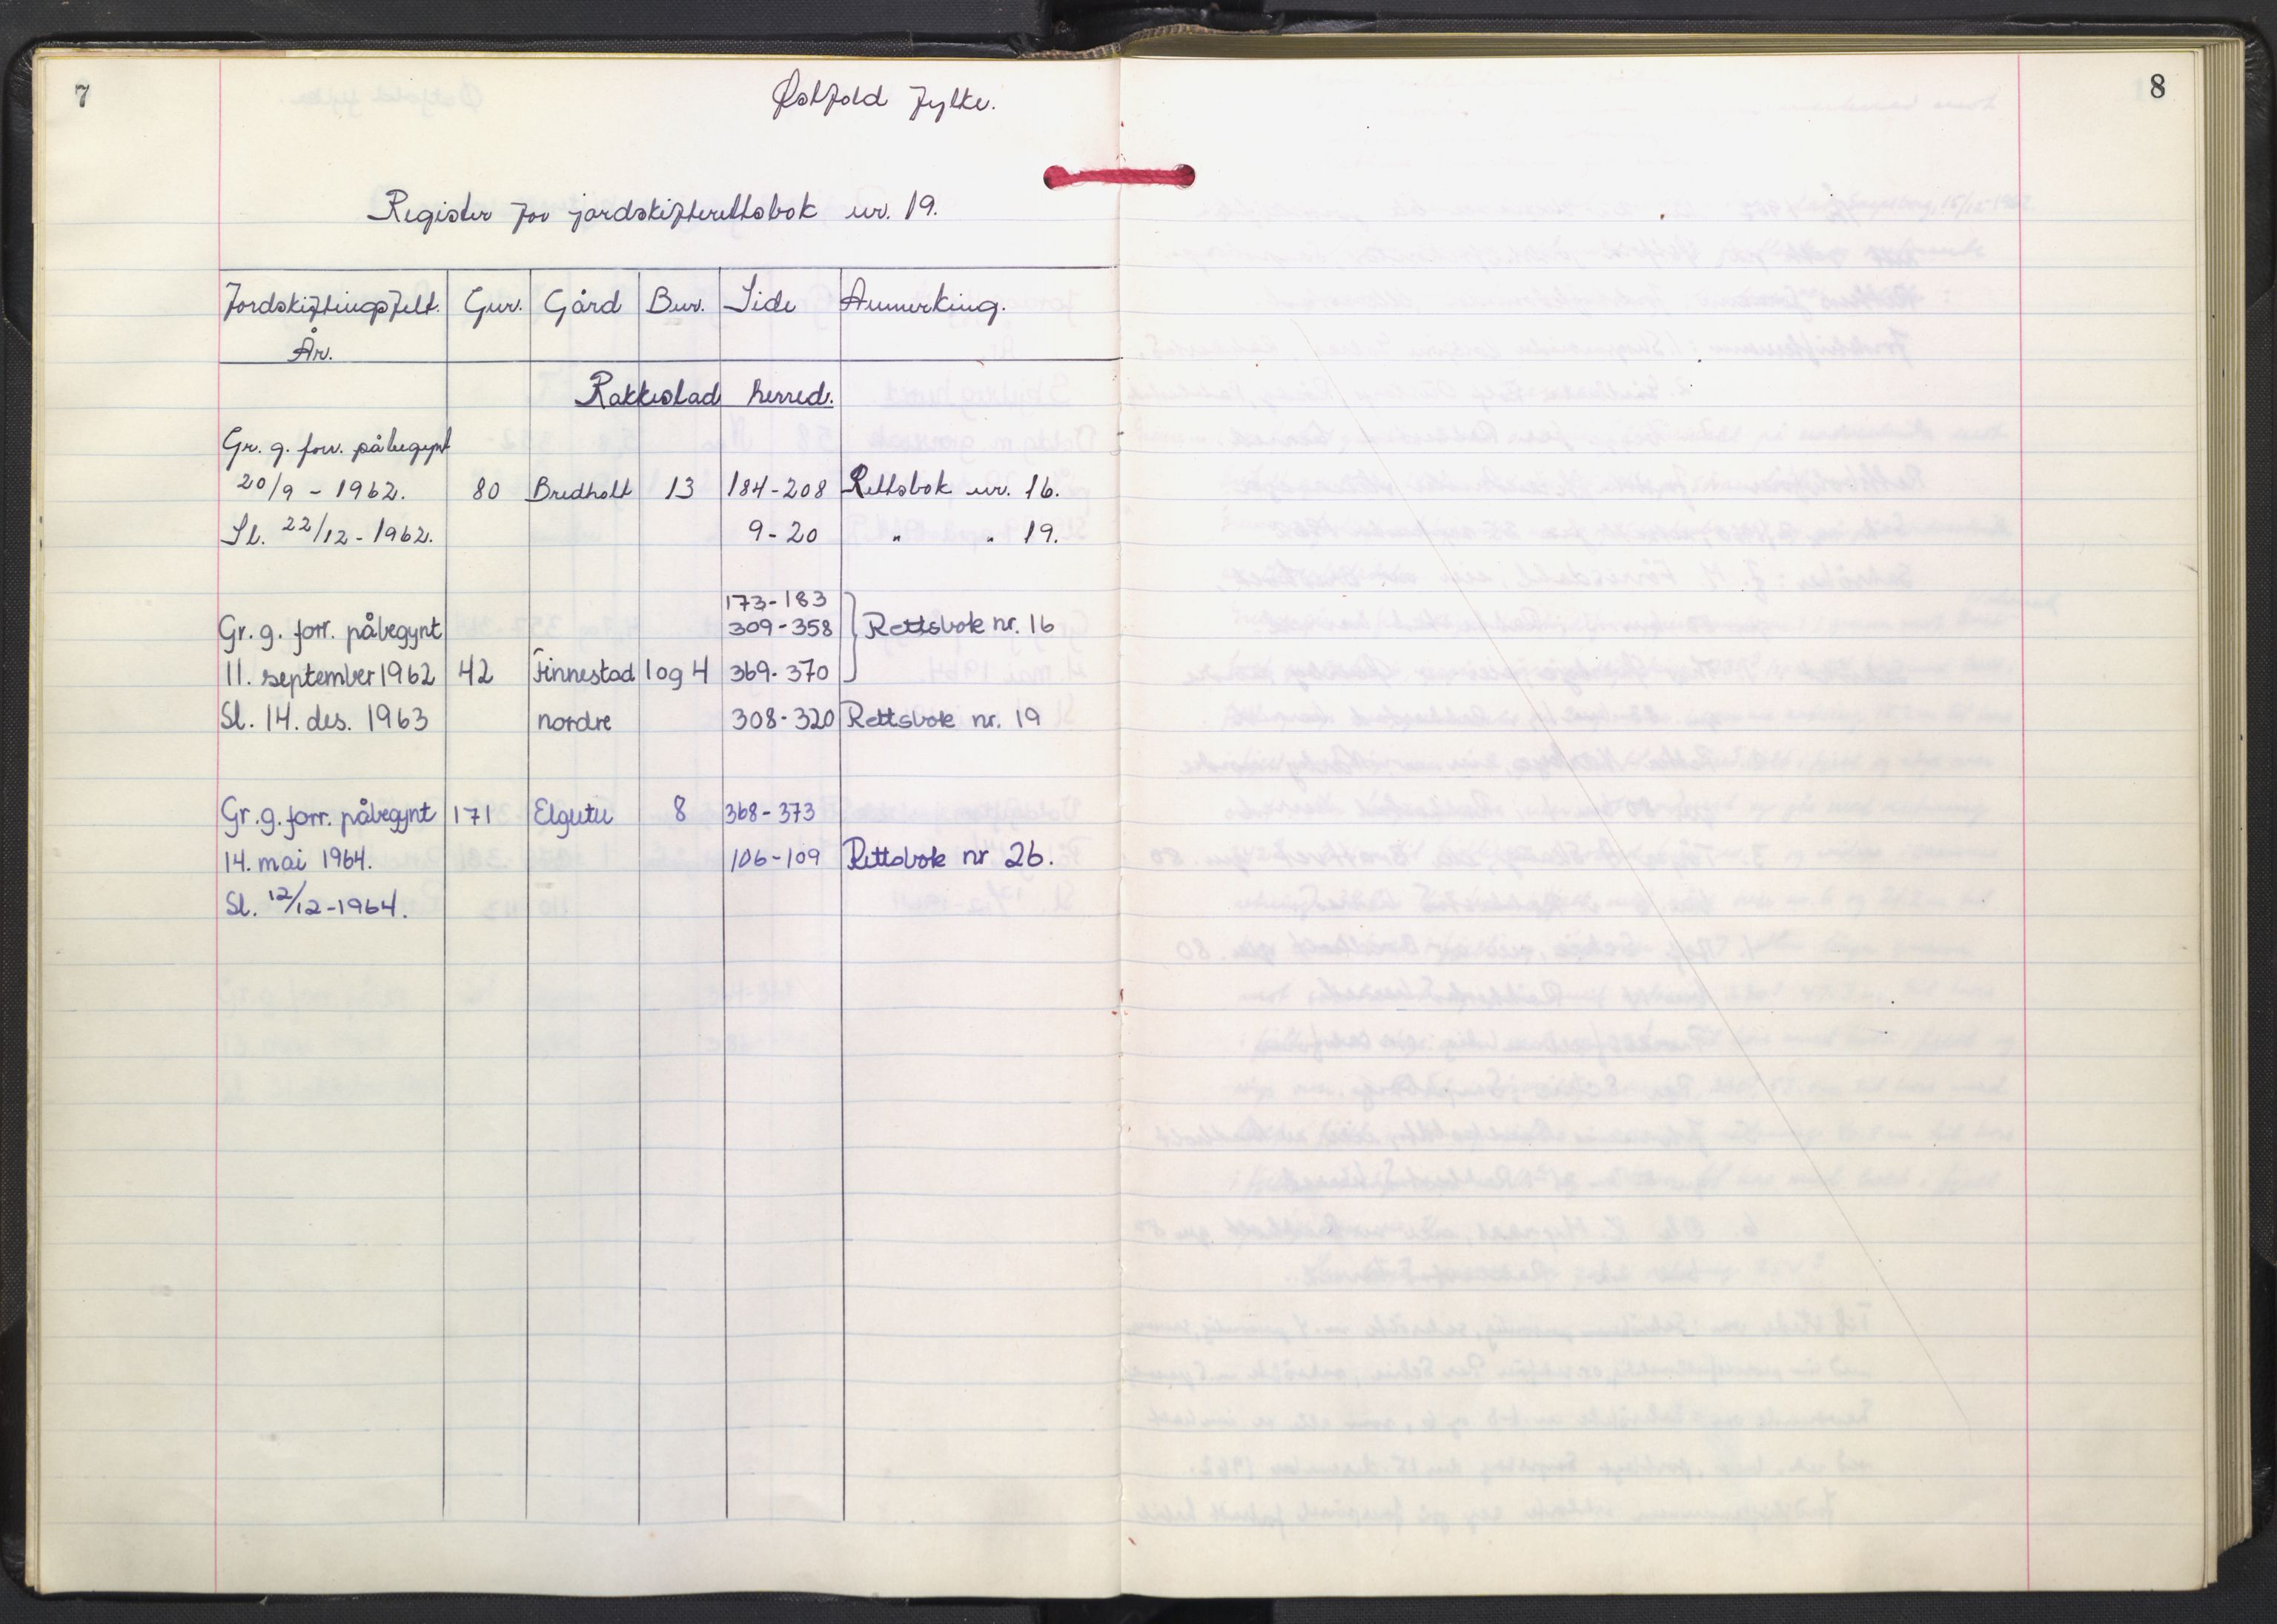 7
8
Østfold fylke.
Register for jordskifterettsbok nr. 19.
Jordskiftingsfelt. Gnr. Gård Bnr. Side Anmerking.
År.
Rakkestad herred.
Gr. g. forr. påbegynt
20/9 - 1962. 80 Bredholt 13 184-208 Rettsbok nr. 16.
Sl. 22/12 - 1962. 9-20 " " 19.
173-183
Gr. g. forr. påbegynt 309-358 Rettsbok nr. 16
11. september 1962 42 Finnestad 1 og 4 369-370
Sl. 14. des. 1963 nordre 308-320 Rettsbok nr. 19
Gr. g. forr. påbegynt 171 Elgetu 8 368-373
14. mai 1964. 106-109 Rettsbok nr 26.
Sl. 12/12-1964.